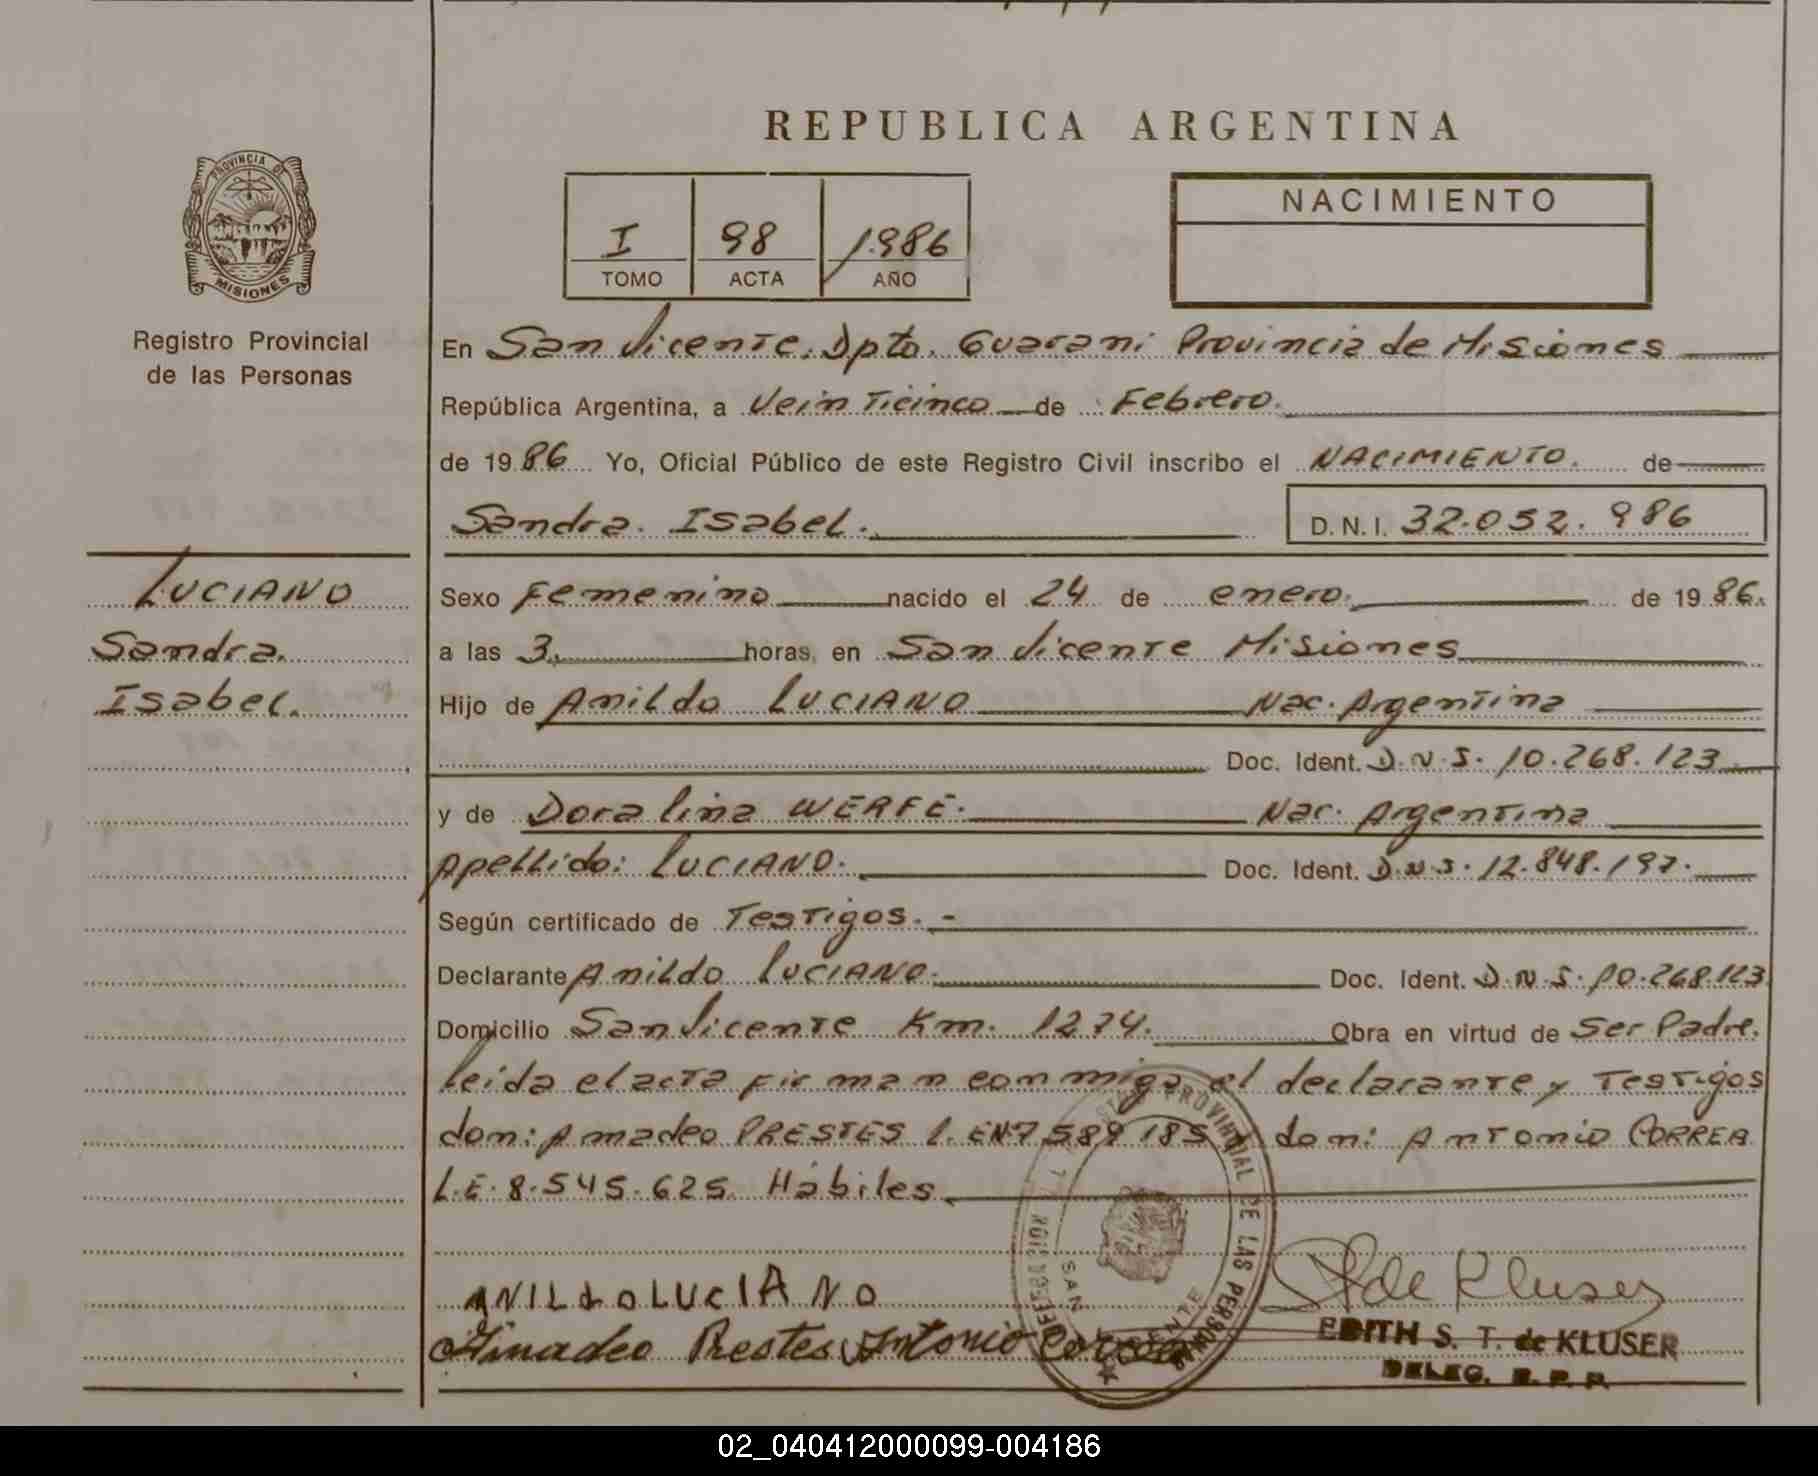 REPUBLICA ARGENTINA
PROVINCIA DE
MISIONES
Registro Provincial
de las Personas
I 98 1.986
TOMO ACTA AÑO
NACIMIENTO
En San Vicente. Dpto. Guarani Provincia de Misiones
República Argentina, a Vein Ticinco de Febrero.
de 19 86 Yo, Oficial Público de este Registro Civil inscribo el NACIMIENTO. de
Sandra. Isabel. D.N.I. 32.052.986
LUCIANO
Sandra.
Isabel.
Sexo Femenino nacido el 24 de enero. de 19 86.
a las 3. horas, en San Vicente Misiones
Hijo de Anildo LUCIANO Nac. Argentina
Doc. Ident. D.N.I. 10.268.123
y de Dora lina WERFE. Nac. Argentina
Apellido: LUCIANO. Doc. Ident. D.N.I. 12.848.197.
Según certificado de Testigos. -
Declarante Anildo LUCIANO. Doc. Ident. D.N.I. 10.268.123
Domicilio San Vicente Km. 1274. Obra en virtud de Ser Padre.
leida el acta firman conmigo el declarante y Testigos
don: Amadeo PRESTES L.E.Nº 7.589.185 y don: Antonio CORREA
L.E. 8.545.625. Hábiles
ANILDO LUCIANO
Amadeo Prestes Antonio Correa
de Kluser
EDITH S. T. de KLUSER
DELEG. R. P. P.
PROVINCIAL DE LAS PERSONAS
SAN VICENTE
02_040412000099-004186